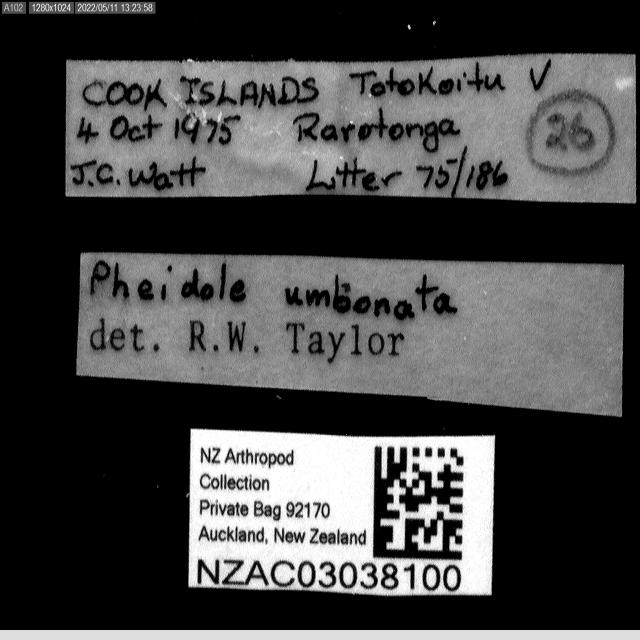 A102 1280x1024 2022/05/11 13:23:58
COOK ISLANDS Totokoitu V
4 Oct 1975 Rarotonga 26
J.C. Watt Litter 75/186
Pheidole umbonata
det. R.W. Taylor
NZ Arthropod
Collection
Private Bag 92170
Auckland, New Zealand
NZAC03038100